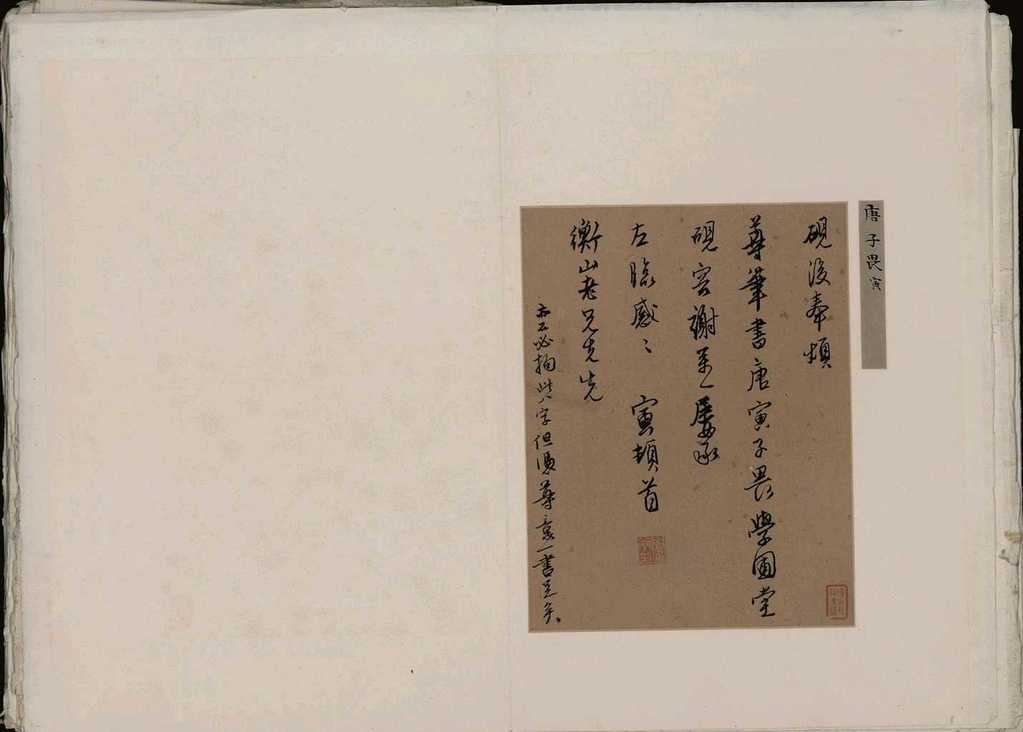 唐子畏寅
硯後奉煩
尊筆書唐寅子畏學圃堂
硯容謝萬一屢承
左臨感〻 寅頓首
衡山老兄先
亦不必拘此字但憑尊意一書足矣